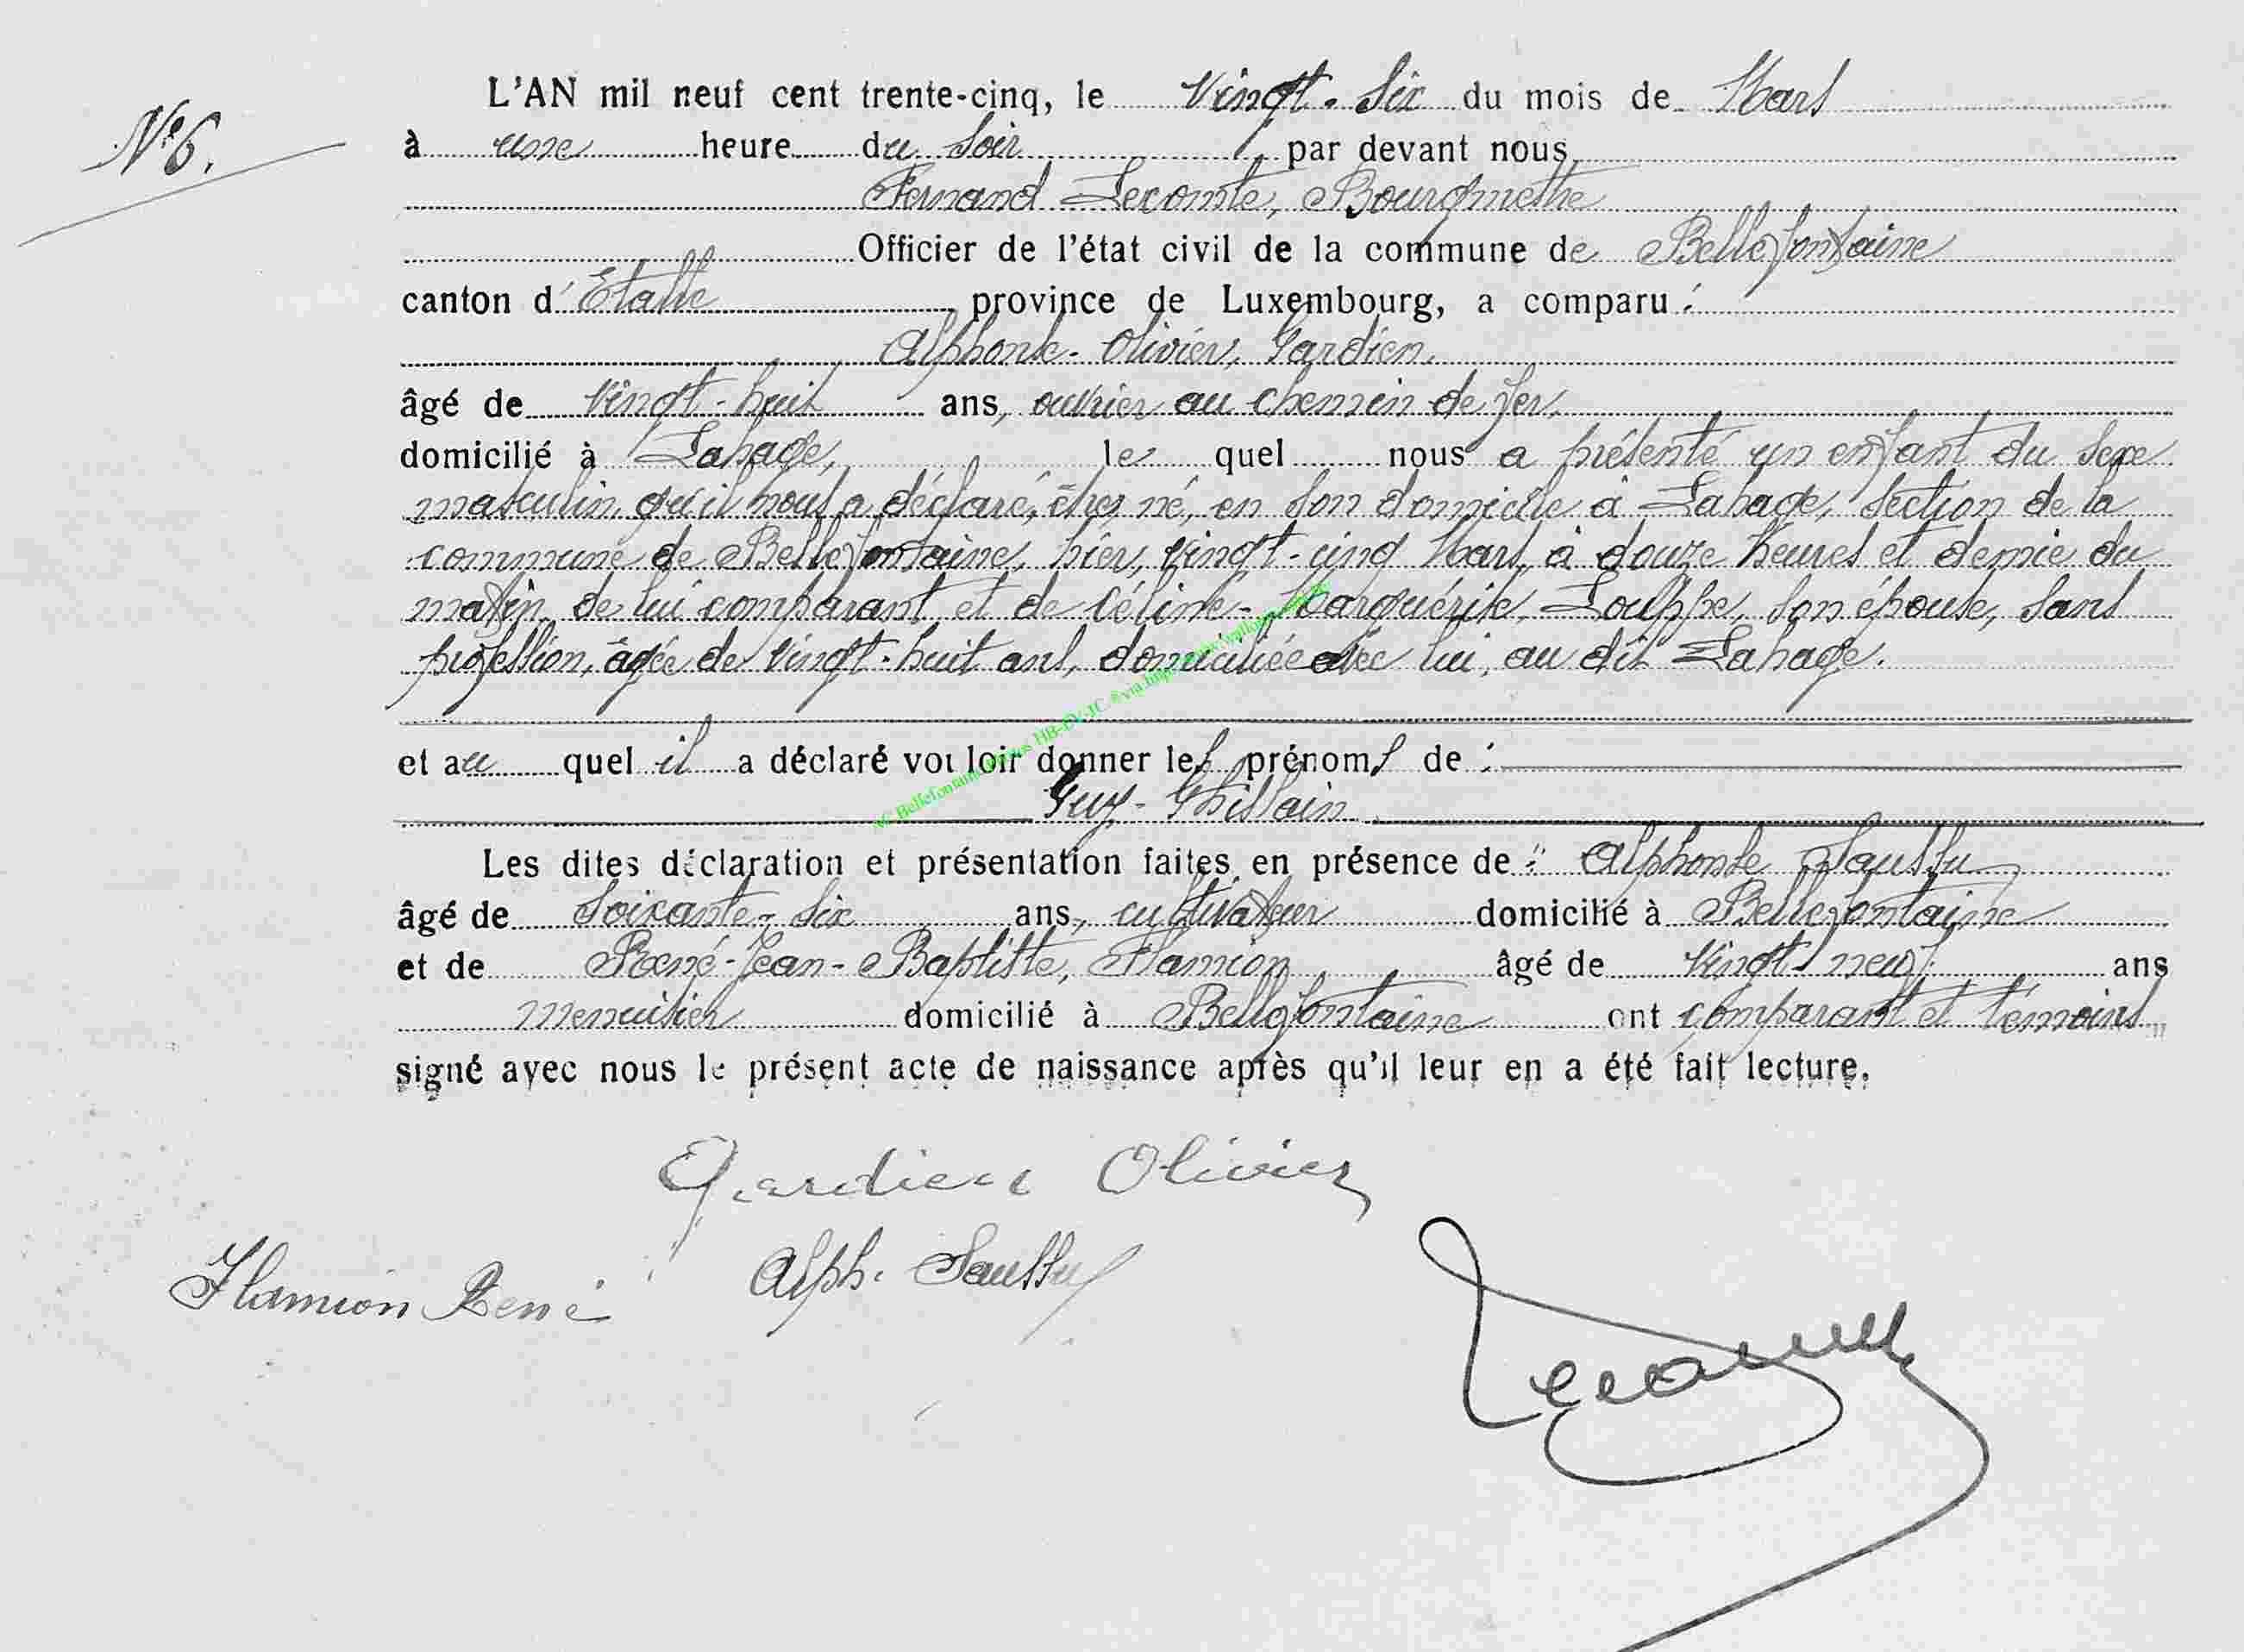 N° 6.
L'AN mil neuf cent trente-cinq, le Vingt-Six du mois de Mars
à une heure du Soir, par devant nous,
Fernand Lecomte, Bourgmestre
Officier de l'état civil de la commune de Bellefontaine
canton d'Etalle province de Luxembourg, a comparu :
Alphonse-Olivier, Gardien,
âgé de Vingt-huit ans, ouvrier au chemin de fer,
domicilié à Lahage, le quel nous a présenté un enfant du sexe
masculin, qu'il nous a déclaré, être né, en son domicile à Lahage, section de la
commune de Bellefontaine, hier, vingt-cinq Mars, à douze heures et demie du
matin, de lui comparant et de Céline-Marguérite, Louppe, son épouse, sans
profession, âgée de vingt-huit ans, domiciliée avec lui, au dit Lahage.
et au quel il a déclaré vouloir donner les prénoms de :
Guy-Ghislain
Les dites déclaration et présentation faites en présence de : Alphonse Saussu
âgé de Soixante-six ans, cultivateur domicilié à Bellefontaine
et de René-Jean-Baptiste, Flamion âgé de Vingt neuf ans
menuisier domicilié à Bellefontaine ont comparant et témoins
signé avec nous le présent acte de naissance après qu'il leur en a été fait lecture.
Gardien Olivier
Alph. Saussu
Flamion René
Lecomte